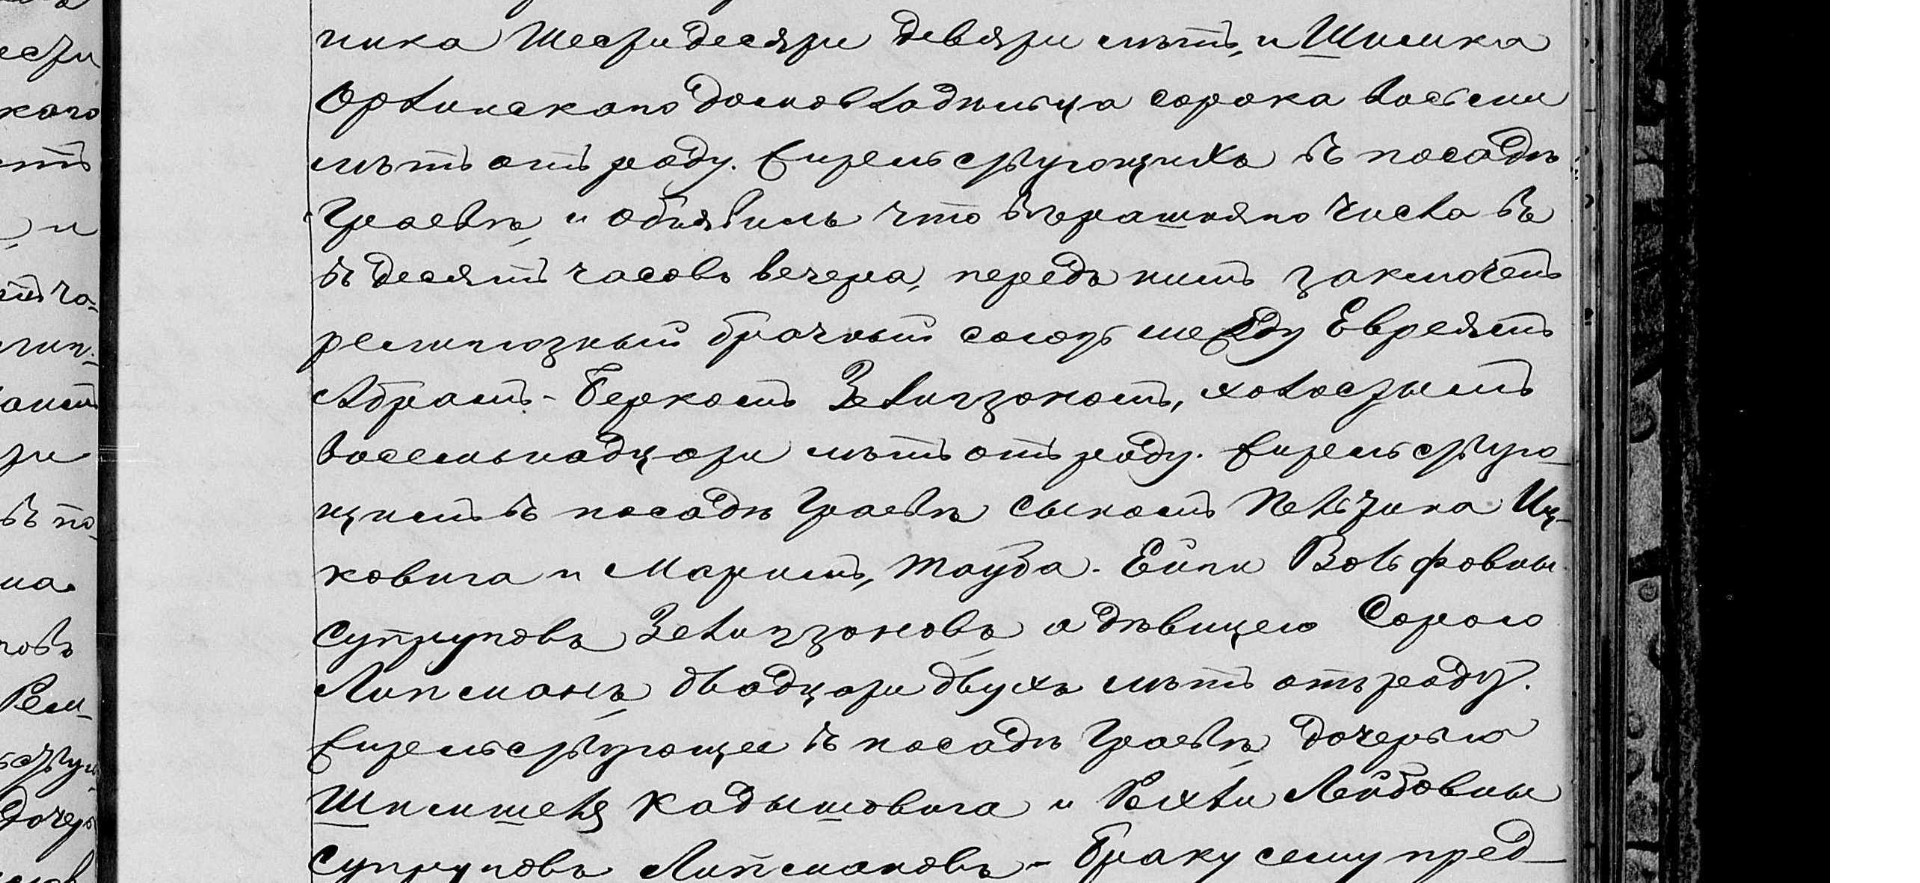 ника Шестидесяти девяти лѣтъ, и Шмилка
Орлинскаго домовладѣльца сорока восьми
лѣтъ отъ роду. Жительствующихъ въ посадѣ
Граевѣ, и объявилъ что вчерашняго числа въ
въ десять часовъ вечера, передъ нимъ заключенъ
религіозный брачный союзъ между Евреямъ
Абрамъ-Беркомъ Зелигзономъ, холостымъ
восемьнадцати лѣтъ отъ роду. жительствую-
щимъ въ посадѣ Граевѣ сыномъ Иц-
ковича и Маріимъ, Тауба-Ейги Вольфовны
супруговъ Зелигзоновъ, а дѣвицею Сорою
Липсманъ, двадцати двухъ лѣтъ отъ роду.
Жительствующее въ посадѣ Граевѣ, дочерью
Кадышовича и Лейбовны
супруговъ Липсмановъ - Браку сему пред-